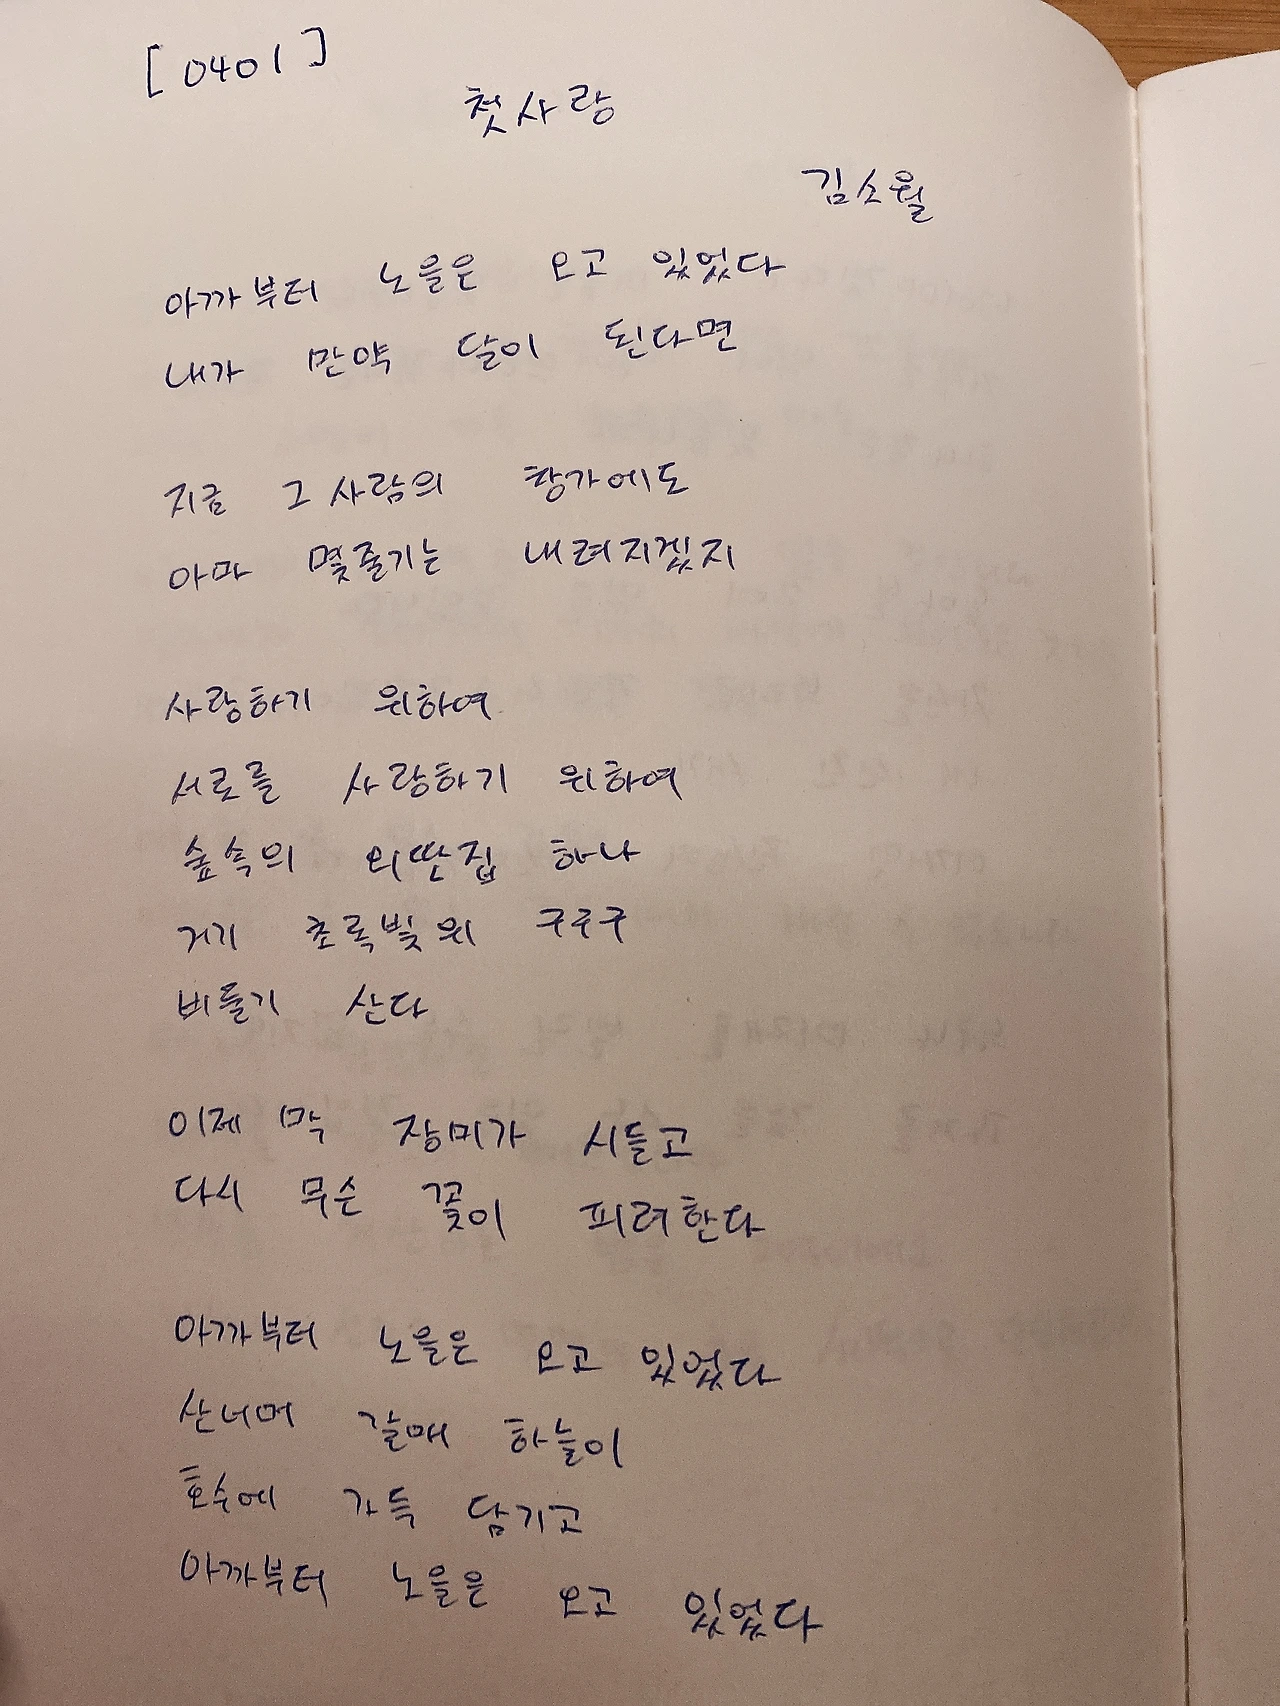 [0401]
첫사랑
김소월
아까부터 노을은 오고 있었다
내가 만약 달이 된다면
지금 그 사람의 창가에도
아마 몇줄기는 내려지겠지
사랑하기 위하여
서로를 사랑하기 위하여
숲속의 외딴집 하나
거기 초록빛위 구구구
비둘기 산다
이제 막 장미가 시들고
다시 무슨 꽃이 피려한다
아까부터 노을은 오고 있었다
산너머 갈매 하늘이
호수에 가득 담기고
아까부터 노을은 오고 있었다